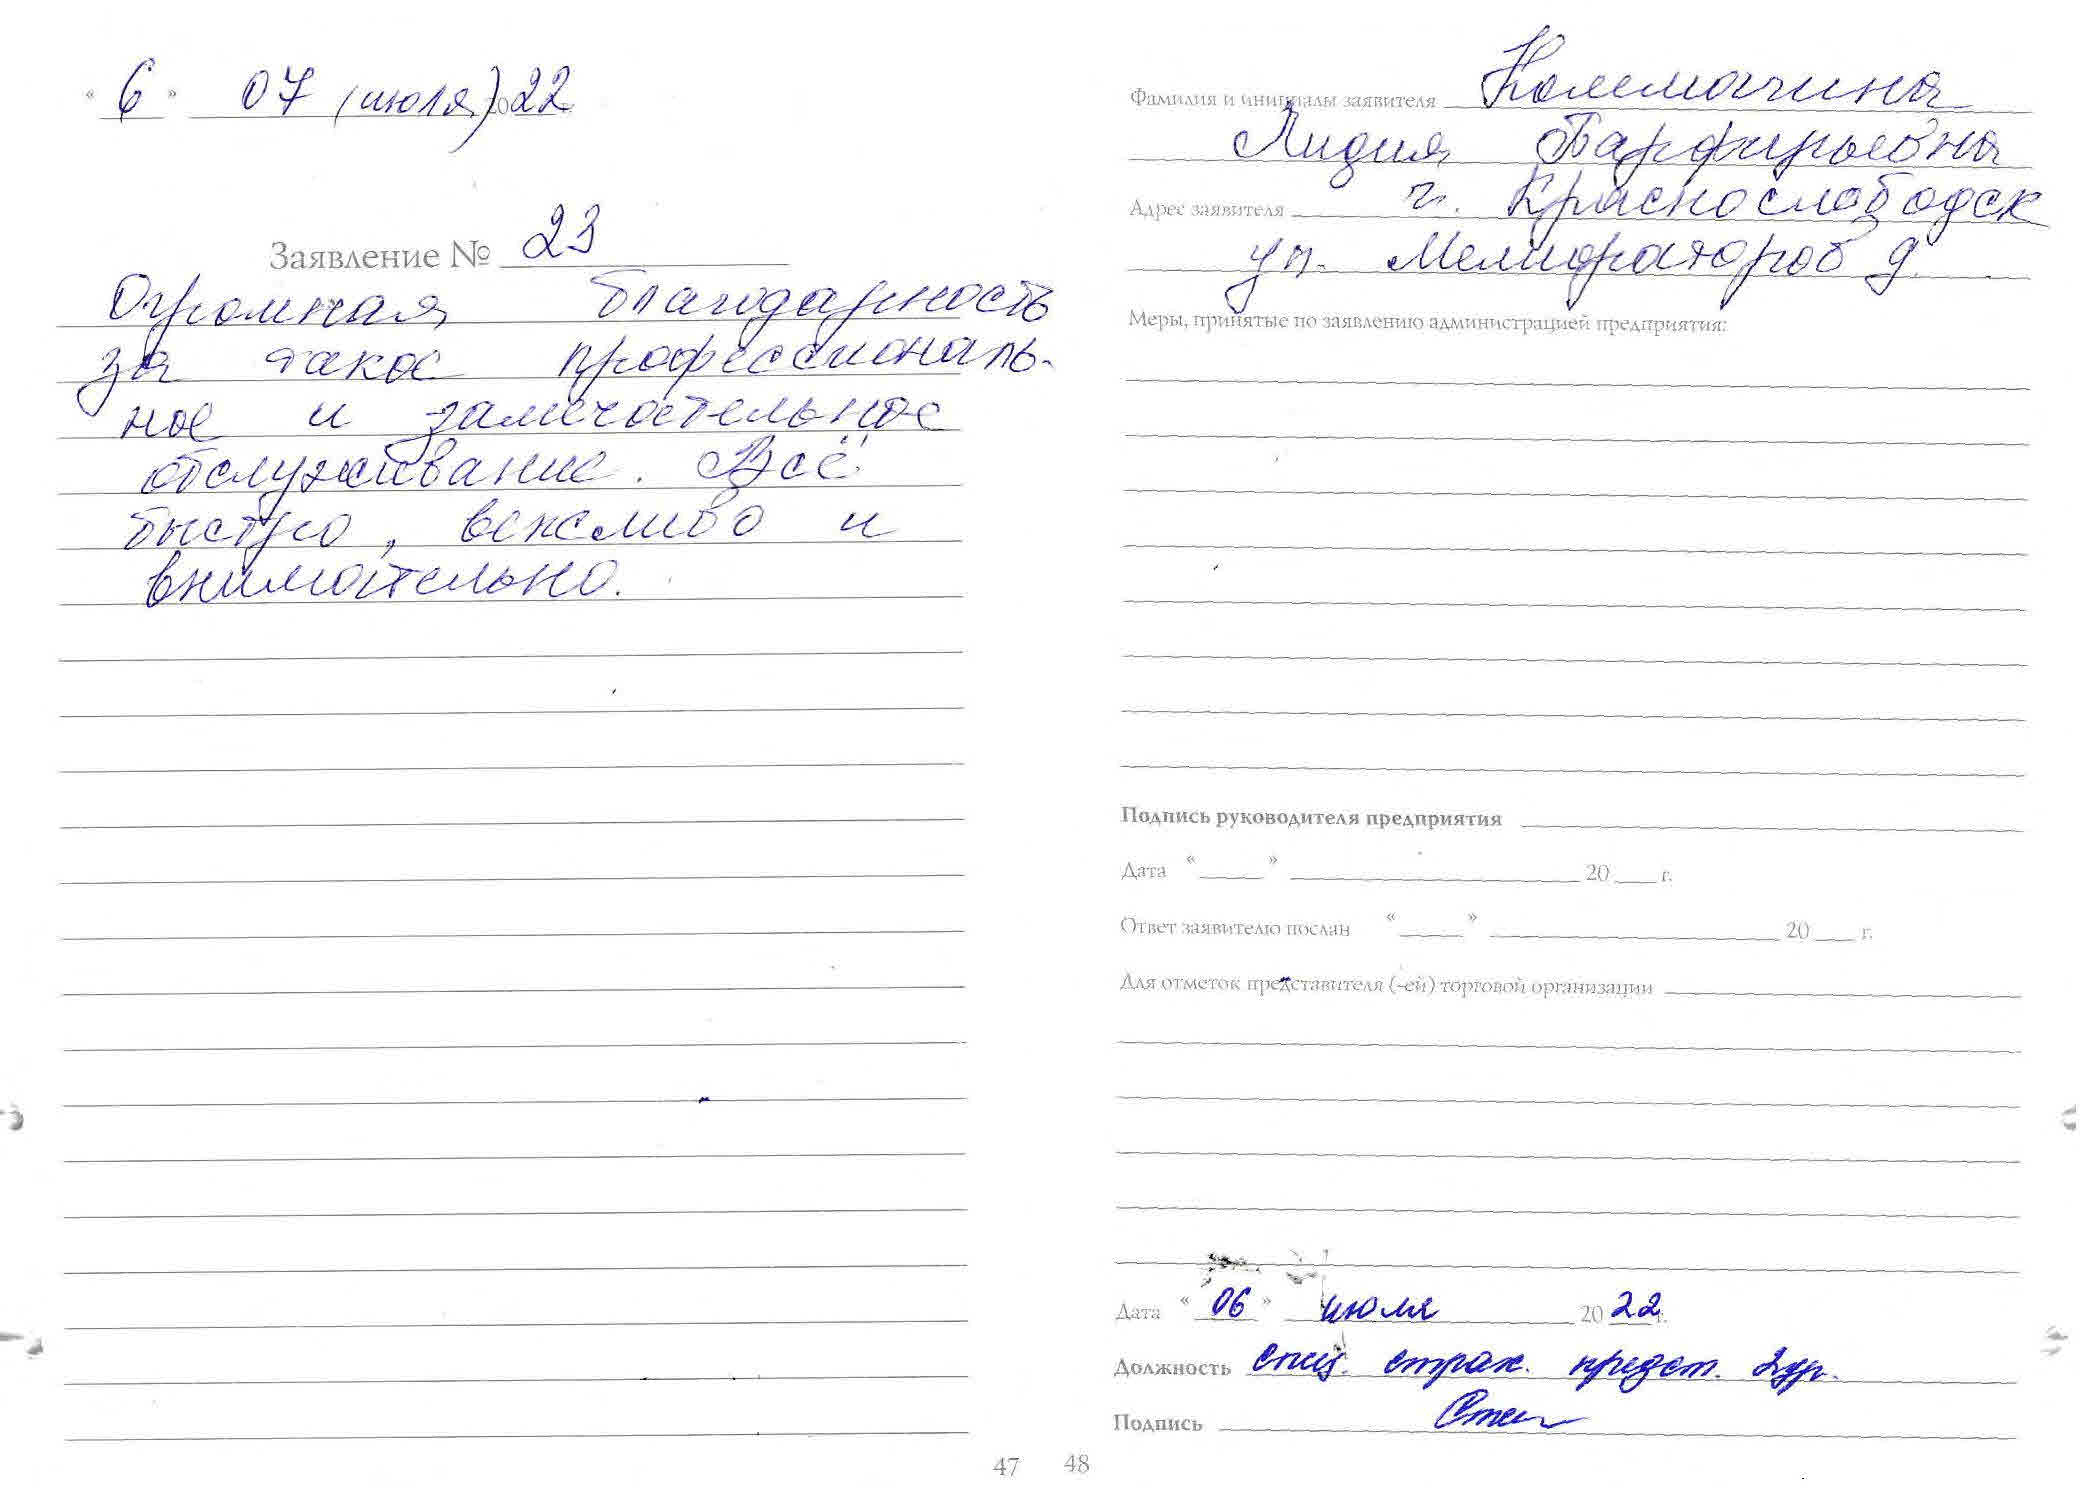 « 6 » 07 (июля) 2022
Заявление № 23
Огромная благодарность
за такое профессиональ-
ное и замечательное
обслуживание. Всё
быстро, вежливо и
внимательно.
47
Фамилия и инициалы заявителя
Лидия Парфирьевна
Адрес заявителя г. Краснослободск
ул. Мелиораторов д.
Меры, принятые по заявлению администрацией предприятия:
Подпись руководителя предприятия
Дата « » 20 г.
Ответ заявителю послан « » 20 г.
Для отметок представителя (-ей) торговой организации
Дата « 06 » июля 20 22 г.
Должность спец. страх. предст. 2 ур.
Подпись
48